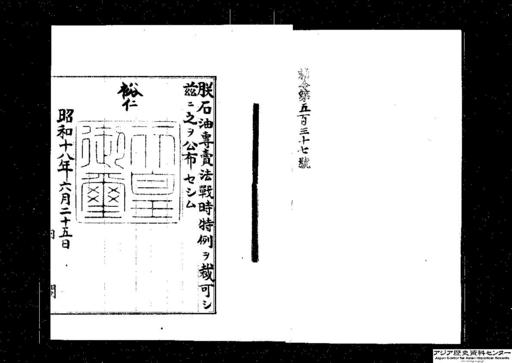 勅令第五百三十七號
朕石油專賣法戰時特例ヲ裁可シ
茲ニ之ヲ公布セシム
裕仁
天皇御璽
昭和十八年六月二十五日
内閣
アジア歴史資料センター
Japan Center for Asian Historical Records